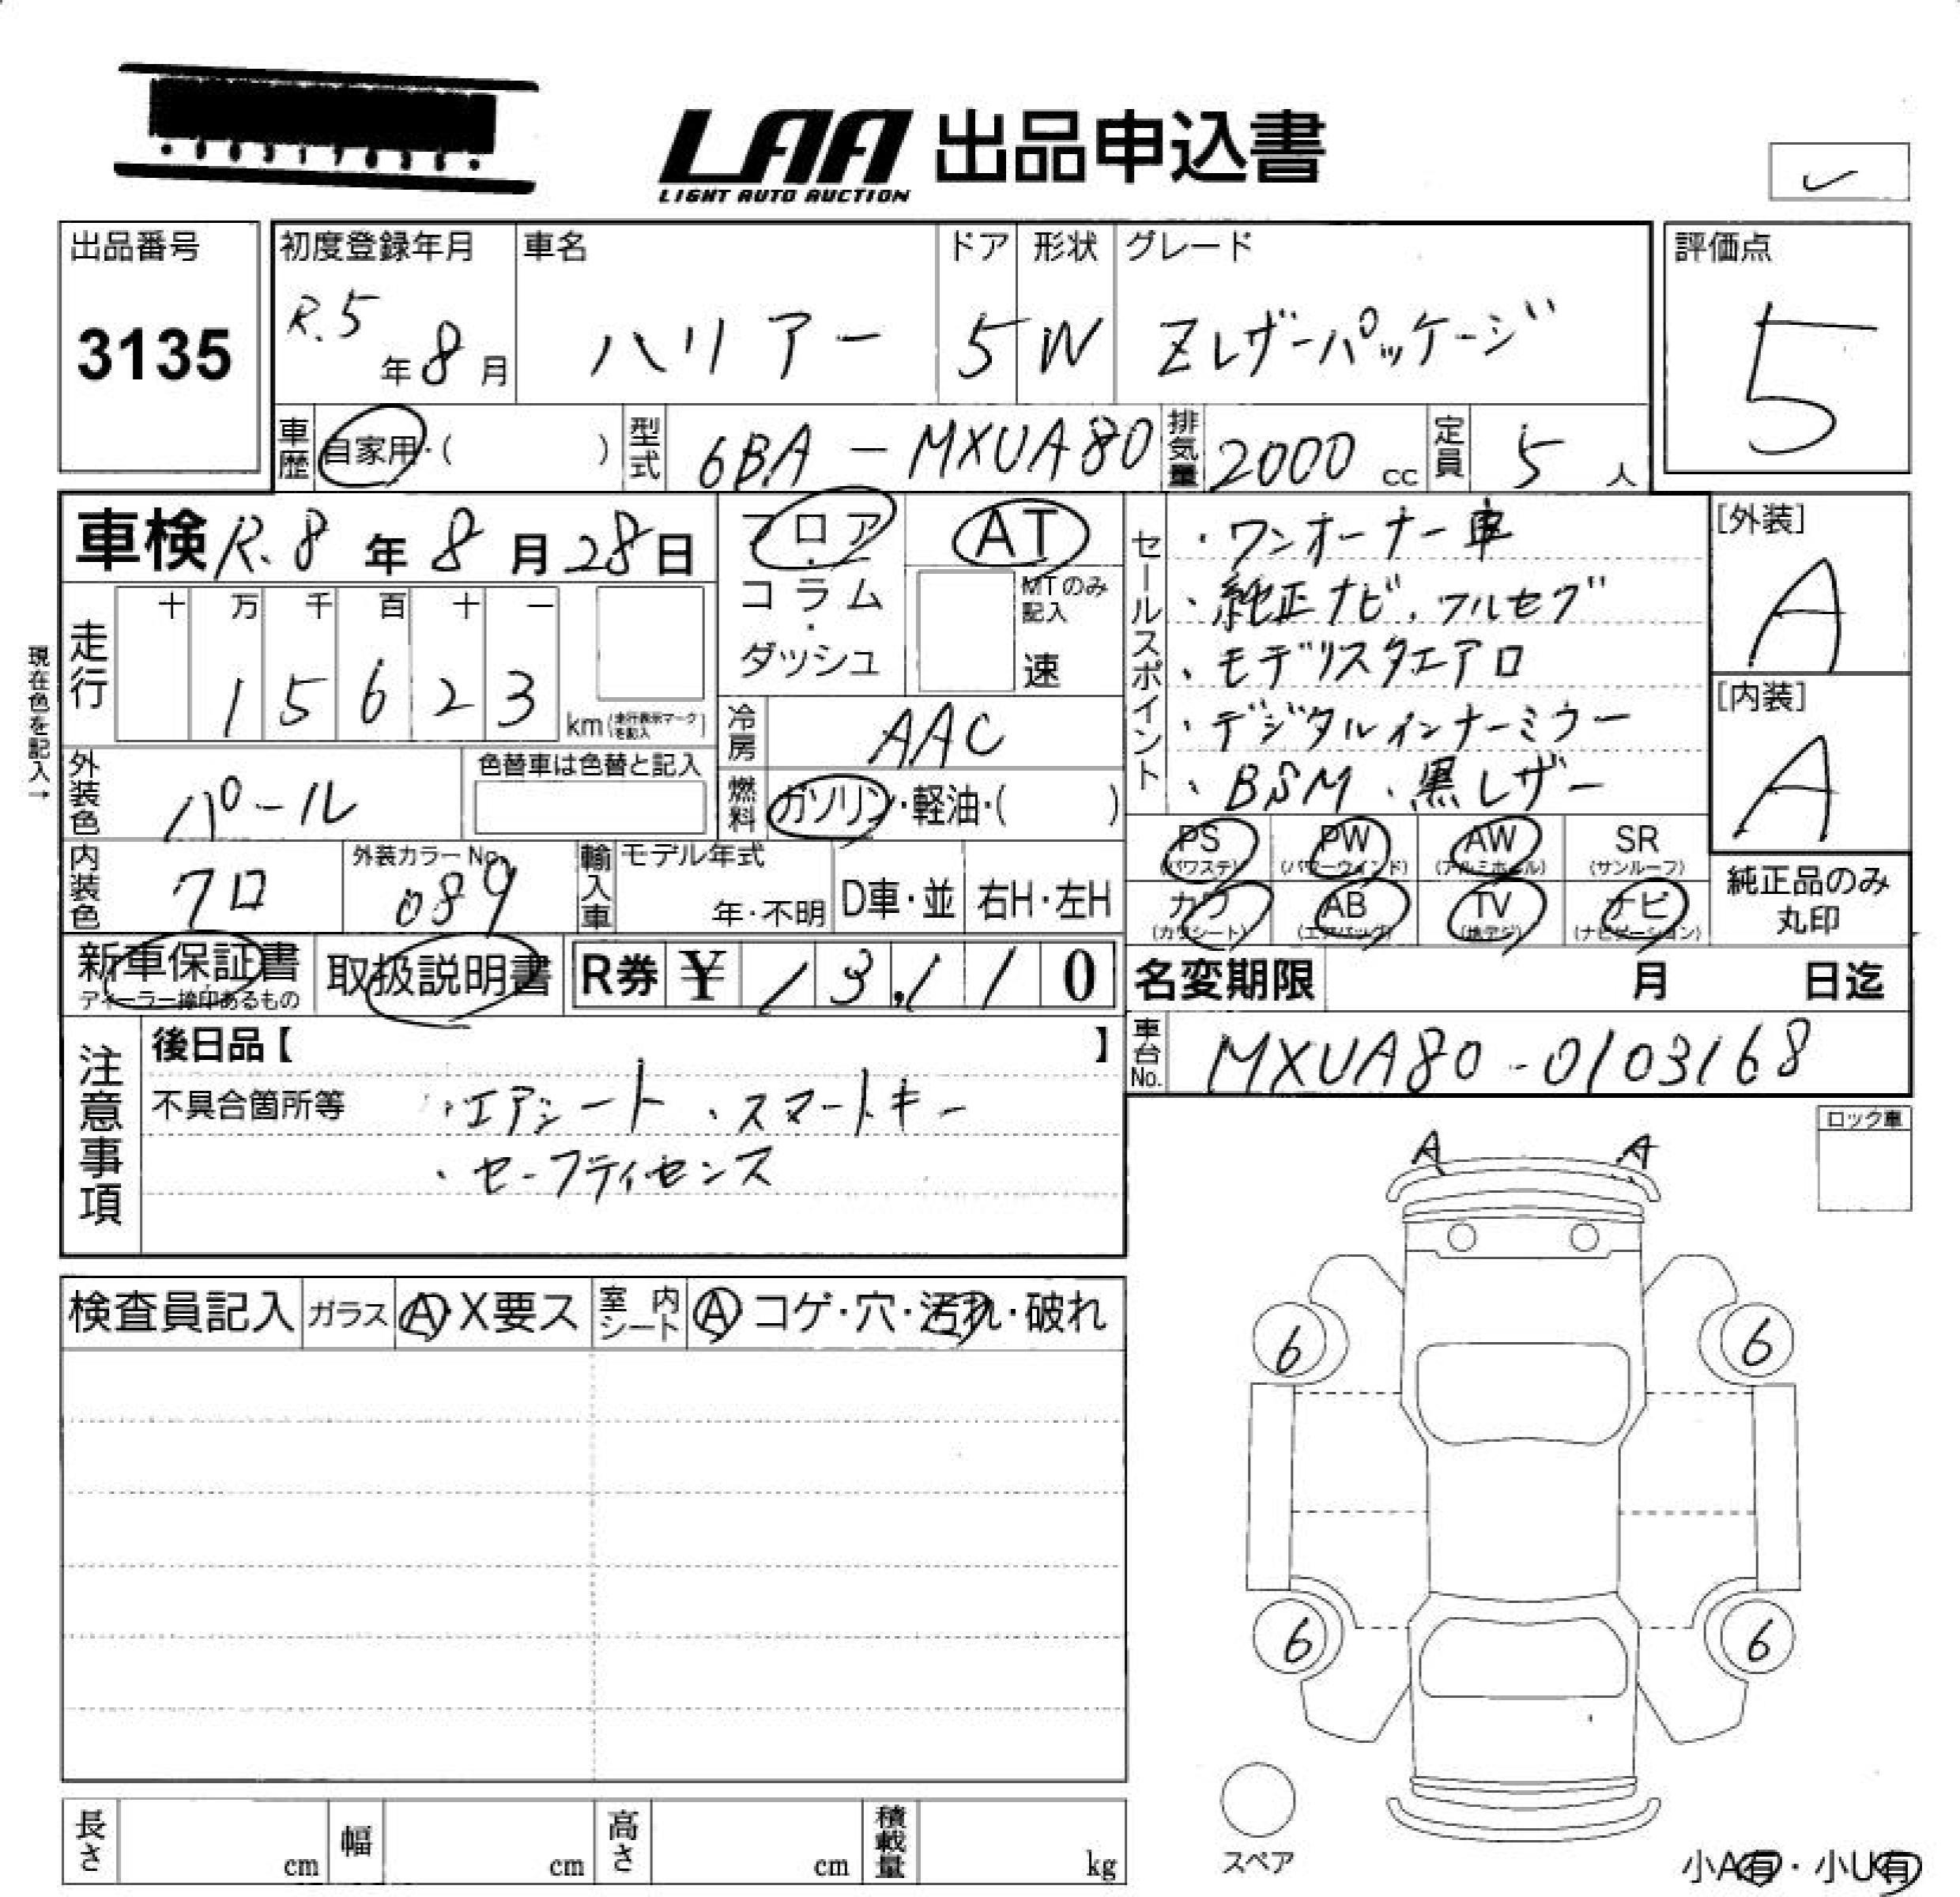 LAA 出品申込書
LIGHT AUTO AUCTION
出品番号
3135
初度登録年月
R.5年8月
車名
ハリアー
ドア
5
形状
W
グレード
Zレザーパッケージ
評価点
5
車歴 自家用・( )
型式 6BA-MXUA80
排気量 2000cc
定員 5人
車検 R.8年8月28日
フロア・コラム・ダッシュ
AT
MTのみ記入
速
セールスポイント
・ワンオーナー車
・純正ナビ、フルセグ
・モデリスタエアロ
・デジタルインナーミラー
・BSM、黒レザー
[外装]
A
[内装]
A
現在色を記入→
走行
十 万 千 百 十 一
1 5 6 2 3
km(走行表示マークを記入)
冷房 AAC
外装色 パール
色替車は色替と記入
燃料 ガソリン・軽油・( )
内装色 クロ
外装カラーNo. 089
輸入車 モデル年式
年・不明
D車・並
右H・左H
PS (パワステ)
PW (パワーウインド)
AW (アルミホイール)
SR (サンルーフ)
カワ (カワシート)
AB (エアバッグ)
TV (地デジ)
ナビ (ナビゲーション)
純正品のみ丸印
新車保証書
ディーラー捺印あるもの
取扱説明書
R券 ¥ 13,110
名変期限 月 日迄
車台No. MXUA80-0103168
注意事項
後日品【 】
不具合箇所等 ・エアシート 、スマートキー
・セーフティセンス
ロック車
A A
検査員記入
ガラス A・X要ス
室内シート A コゲ・穴・汚れ・破れ
6 6
6 6
スペア
長さ cm
幅 cm
高さ cm
積載量 kg
小A有・小U有